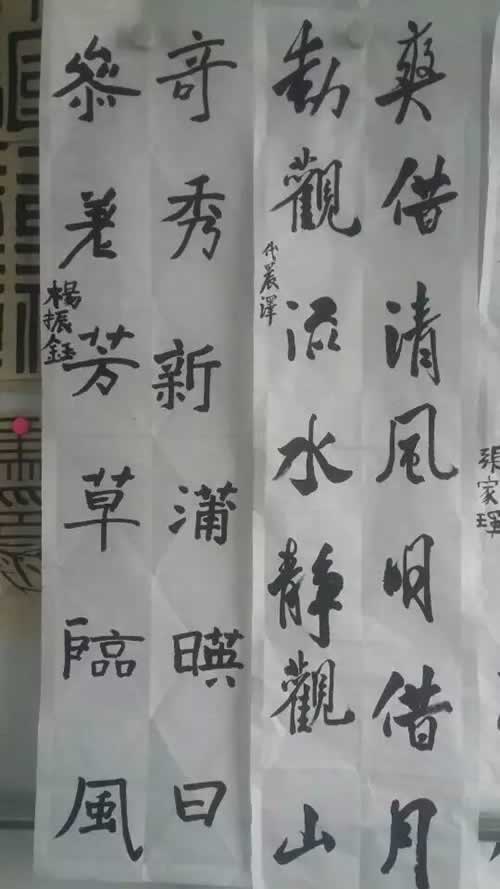 爽借清風明借月
動觀流水静觀山
代晨澤
奇秀新蒲暎日
參差芳草臨風
楊振鈺
張家